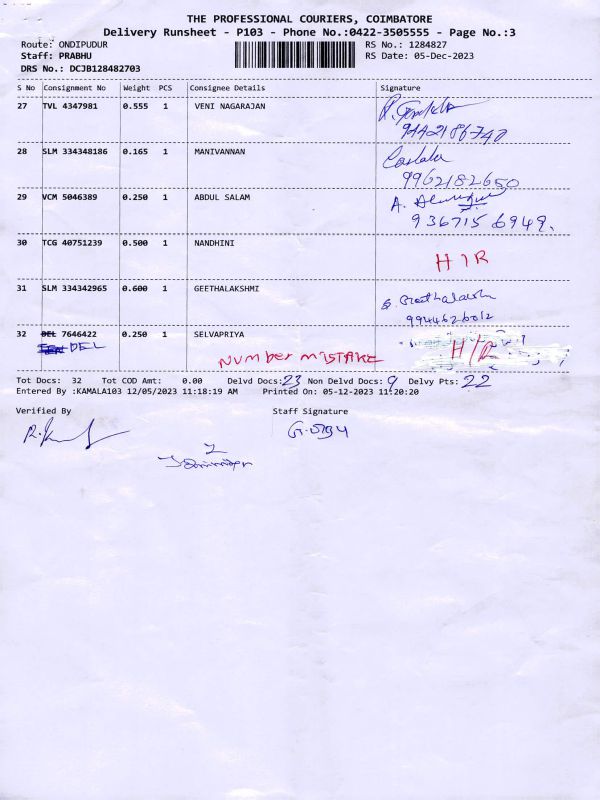 THE PROFESSIONAL COURIERS, COIMBATORE
Delivery Runsheet - P103 - Phone No.:0422-3505555 - Page No.:3
Route: ONDIPUDUR
RS No.: 1284827
Staff: PRABHU
RS Date: 05-Dec-2023
DRS No.: DCJB128482703
S No Consignment No Weight PCS Consignee Details Signature
27 TVL 4347981 0.555 1 VENI NAGARAJAN
9442186740
28 SLM 334348186 0.165 1 MANIVANNAN
9962182650
29 VCM 5046389 0.250 1 ABDUL SALAM
A.
9367156949.
30 TCG 40751239 0.500 1 NANDHINI
H I R
31 SLM 334342965 0.600 1 GEETHALAKSHMI
9944626012
32 DEL 7646422 0.250 1 SELVAPRIYA
DEL
NUMber MISTAKE
H/R
Tot Docs: 32 Tot COD Amt: 0.00 Delvd Docs:23 Non Delvd Docs:9 Delvy Pts:22
Entered By :KAMALA103 12/05/2023 11:18:19 AM Printed On: 05-12-2023 11:20:20
Verified By
Staff Signature